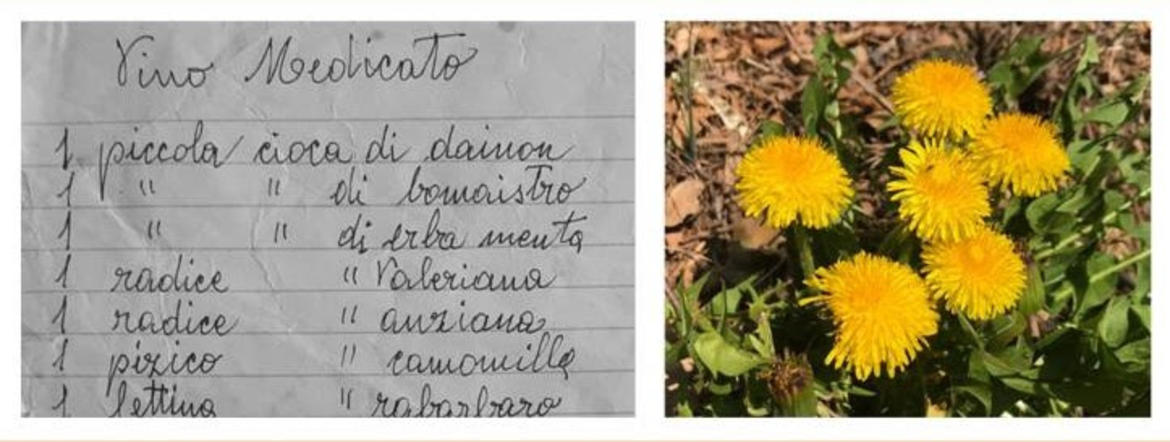 Vino Medicato
1 piccola cioca di dainon
1 " " di bomaistro
1 " " di erba menta
1 radice " Valeriana
1 radice " anziana
1 pizico " camomilla
1 fettina " rabarbaro